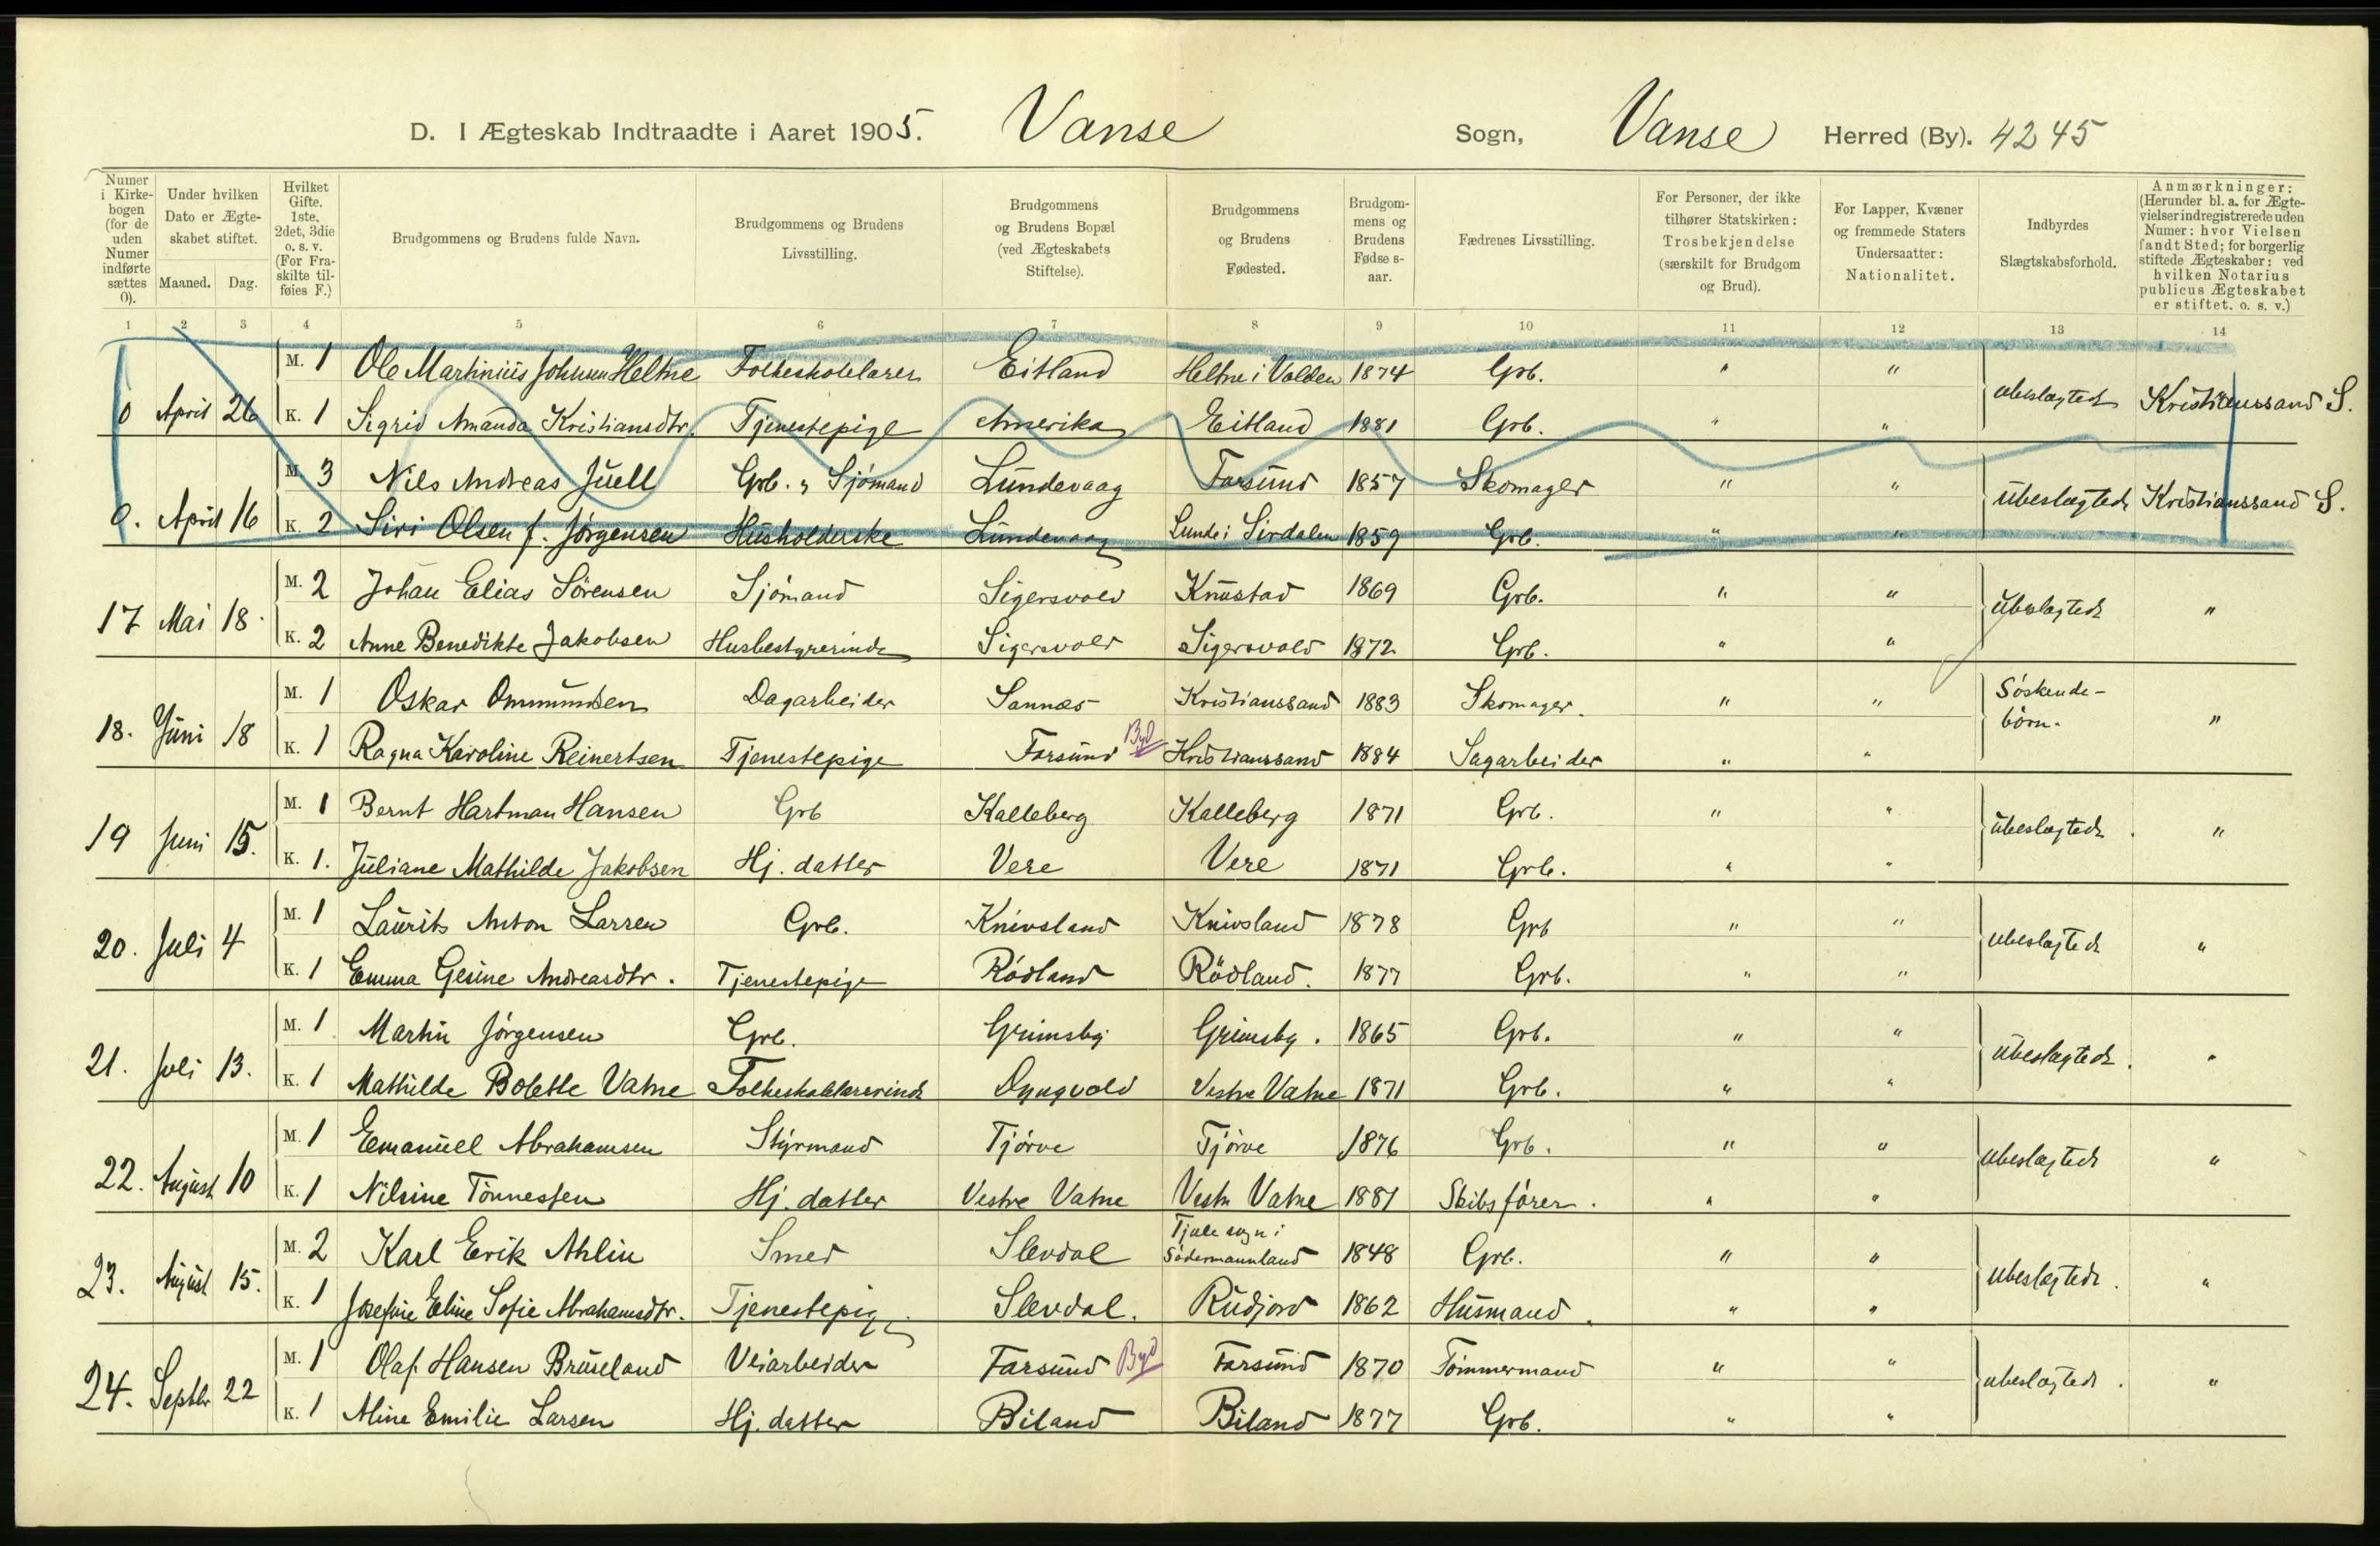 D. I Ægteskab Indtraadte i Aaret 1905. Vanse Sogn, Vanse Herred (By). 4245
Numer i Kirkebogen (for de uden Numer indførte sættes 0). Under hvilken Dato er Ægteskabet stiftet. Maaned. Dag. Hvilket Gifte. 1ste, 2det, 3die o. s. v. (For Fraskilte tilføies F.) Brudgommens og Brudens fulde Navn. Brudgommens og Brudens Livsstilling. Brudgommens og Brudens Bopæl (ved Ægteskabets Stiftelse). Brudgommens og Brudens Fødested. Brudgommens og Brudens Fødse s-aar. Fædrenes Livsstilling. For Personer, der ikke tilhører Statskirken: Trosbekjendelse (særskilt for Brudgom og Brud). For Lapper, Kvæner og fremmede Staters Undersaatter: Nationalitet. Indbyrdes Slægtskabsforhold. Anmærkninger: (Herunder bl. a. for Ægtevielser indregistrerede uden Numer: hvor Vielsen fandt Sted; for borgerlig stiftede Ægteskaber: ved hvilken Notarius publicus Ægteskabet er stiftet. o. s. v.)
1 2 3 4 5 6 7 8 9 10 11 12 13 14
M. 1 Ole Martinius Johnsen Heltne Folkeskolelærer Eitland Heltne i Volden 1874 Grb. " "
0 April 26 K. 1 Sigrid Amanda Kristiansdtr. Tjenestepige Amerika Eitland 1881 Grb. " " ubeslægtede Kristianssand S.
M. 3 Nils Andreas Juell Grb. " Sjömand Lundevaag Farsund 1857 Skomager " "
0. April 16 K. 2 Siri Olsen f. Jørgensen Husholderske Lundevaag Lunde i Sirdalen 1859 Grb. " " ubeslægtede Kristianssand S.
M. 2 Johan Elias Sörensen Sjömand Sigersvold Knustad 1869 Grb. " "
17 Mai 18 K. 2 Anne Benedikte Jakobsen Husbestyrerinde Sigersvold Sigersvold 1872 Grb. " " ubeslægtede "
M. 1 Oskar Ommundsen Dagarbeider Sannæs Kristianssand 1883 Skomager. " " Söskende-
18. Juni 18 K. 1 Ragna Karoline Reinertsen Tjenestepige Farsund Byd Kristianssand 1884 Sagarbeider " " börn. "
M. 1 Bernt Hartman Hansen Grb Kalleberg Kalleberg 1871 Grb. " "
19 Juni 15. K. 1. Juliane Mathilde Jakobsen Hj. datter Vere Vere 1871 Grb. " " ubeslægtede. "
M. 1 Laurits Anton Larsen Grb. Knivsland Knivsland 1878 Grb " "
20. Juli 4 K. 1 Emma Gesine Andreasdtr. Tjenestepige Rödland Rödland. 1877 Grb. " " ubeslægtede "
M. 1 Martin Jörgensen Grb. Grimsby Grimsby. 1865 Grb. " "
21. Juli 13. K. 1 Mathilde Bolette Vatne Folkeskolelærerinde Dyngvold Vestre Vatne 1871 Grb. " " ubeslægtede. "
M. 1 Emanuell Abrahamsen Styrmand Tjörve Tjörve 1876 Grb. " "
22. August 10 K. 1 Nilsine Tönnessen Hj. datter Vestre Vatne Vestre Vatne 1881 Skibsförer. " " ubeslægtede "
M. 2 Karl Erik Ahlin Smed Slevdal Tjule sogn i Södermannland 1848 Grb. " "
23. August 15. K. 1 Josefine Eline Sofie Abrahamsdtr. Tjenestepige. Slevdal. Rudjord 1862 Husmand. " " ubeslægtede. "
M. 1 Olaf Hansen Bruseland Veiarbeider Farsund Byd Farsund 1870 Tömmermand " "
24. Septbr 22 K. 1 Aline Emilie Larsen Hj. datter Biland Biland 1877 Grb. " " ubeslægtede. "